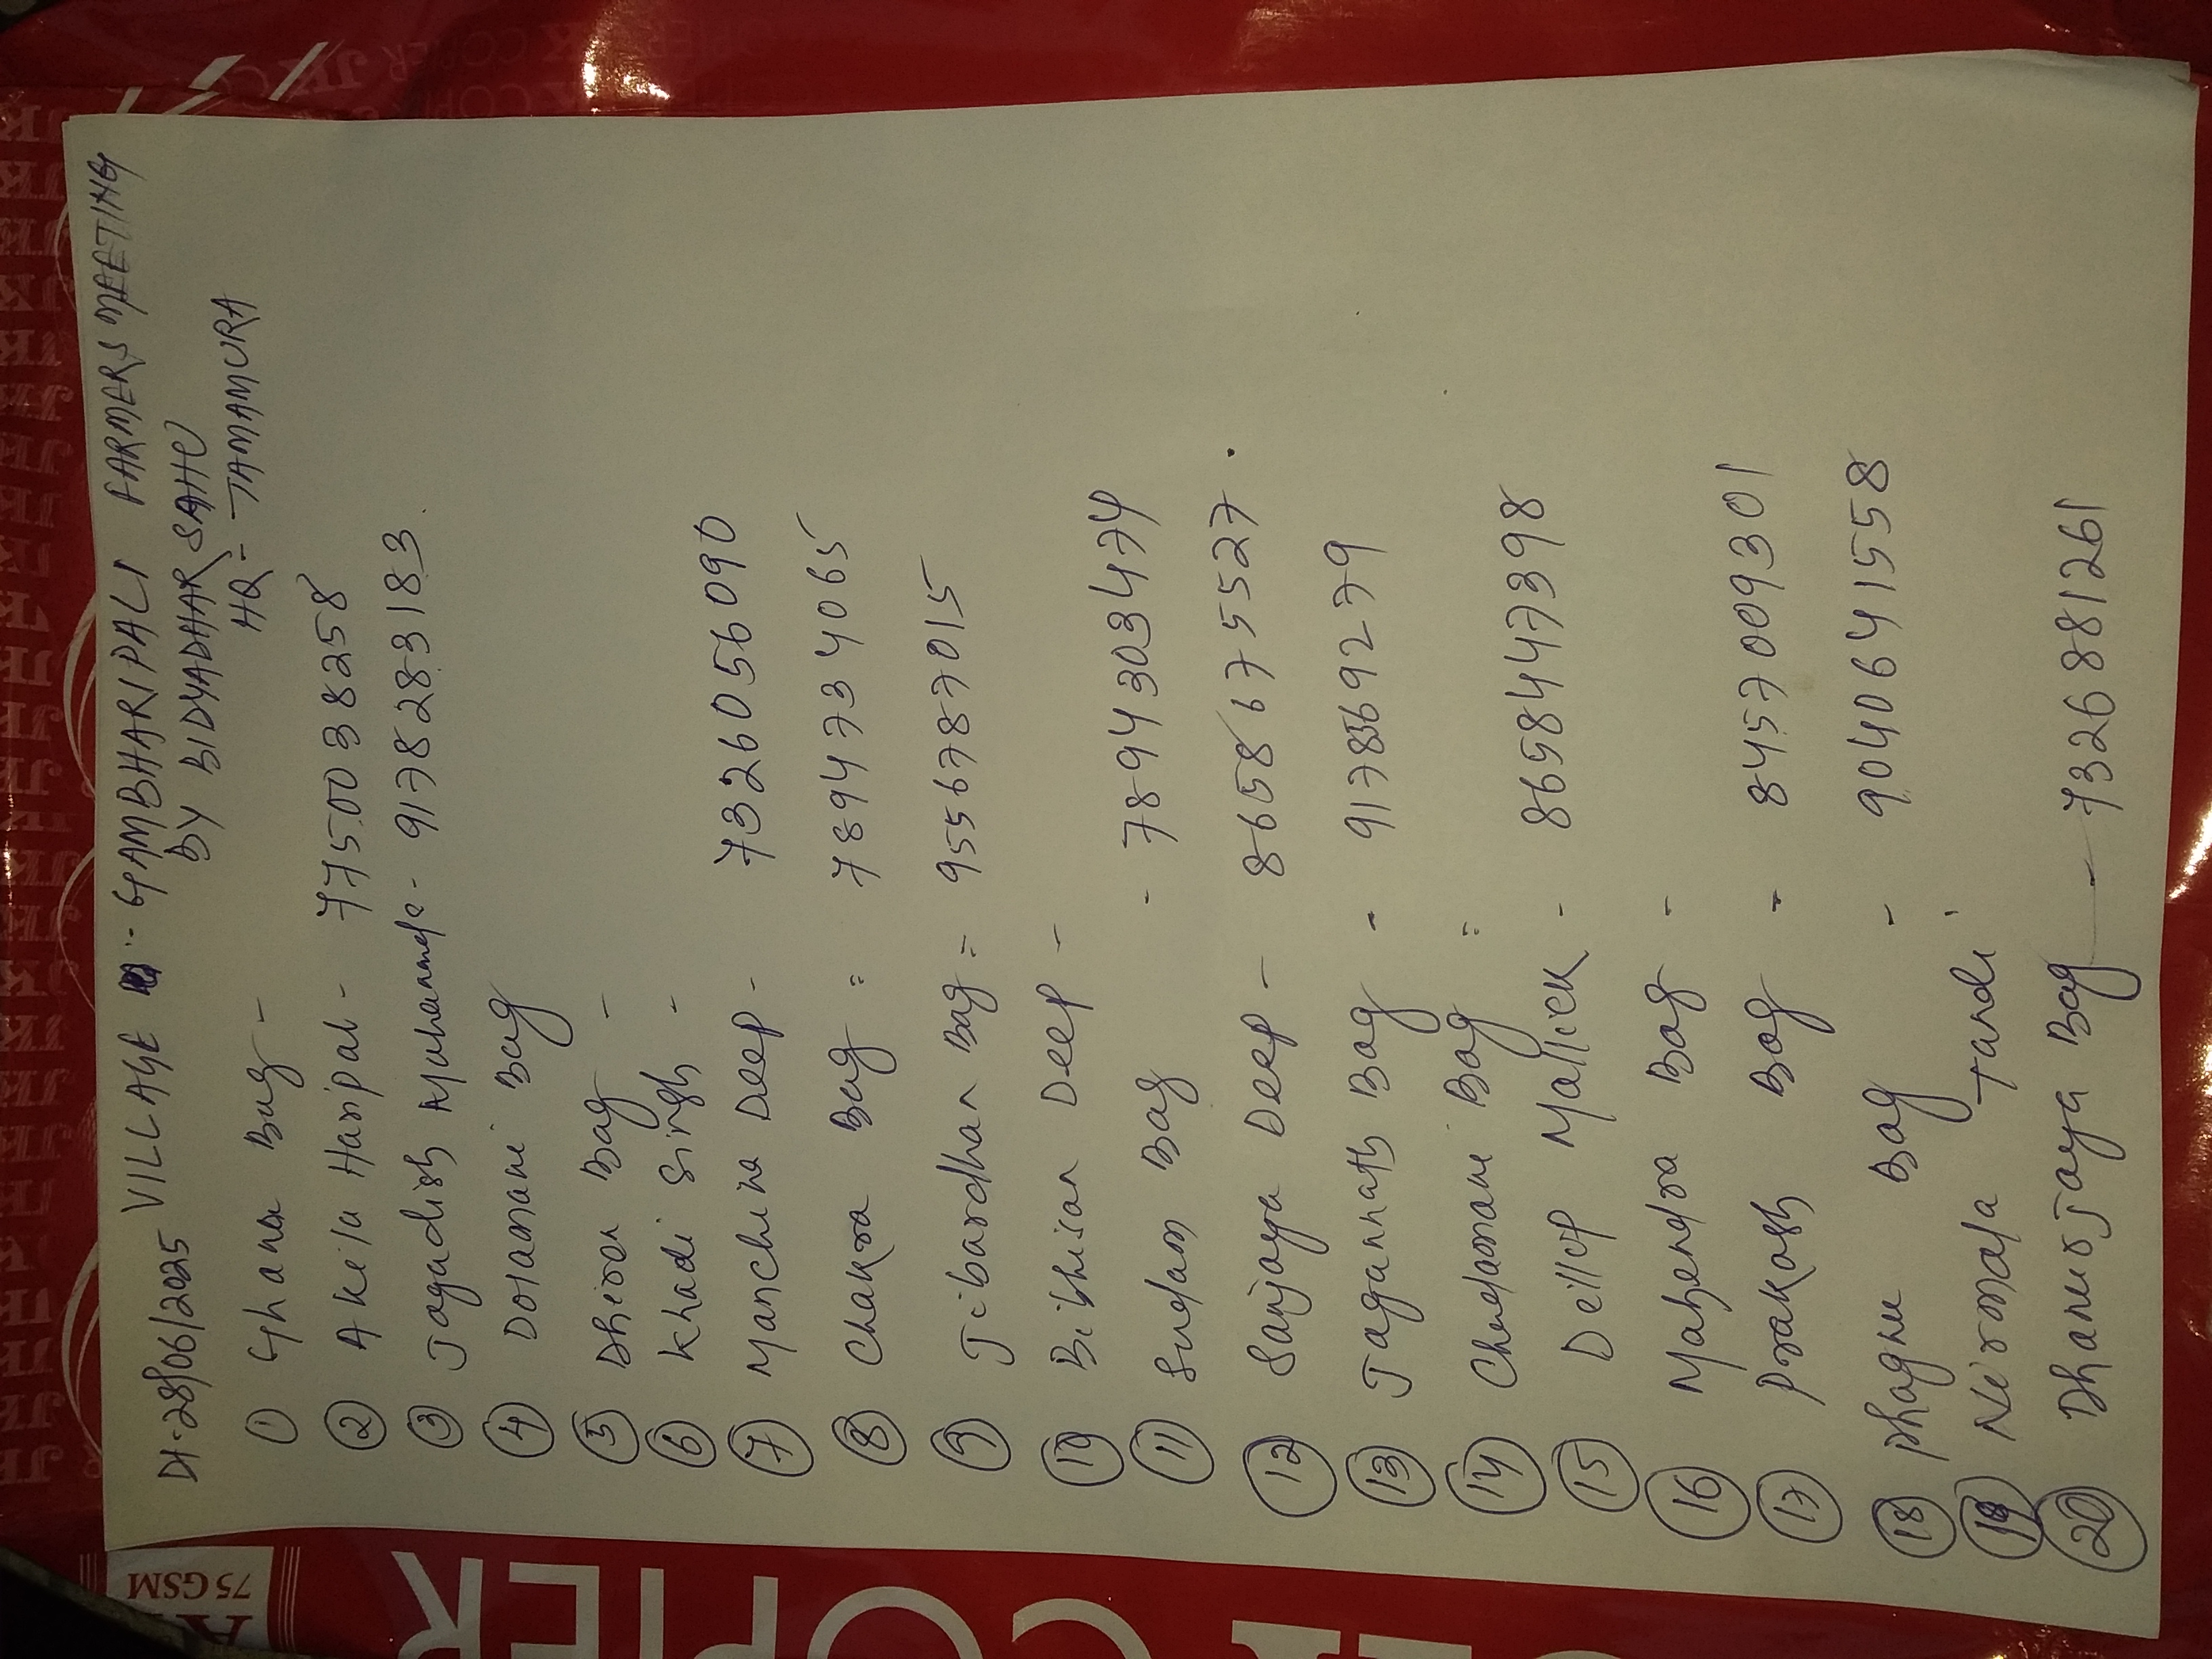 Dt-28/06/2025 VILLAGE :- GAMBHARIPALI FARMERS MEETING
BY BIDYADHAR SAHU
HQ:- TAMAMURA
1 Ghana Bag -
2 Akila Haripal - 7750038258
3 Jagadish Mahananda - 9178283183
4 Dolamani Bag
5 Dhira Bag -
6 Khadi Singh -
7 Manchina Deep - 7326056090
8 Chakra Bag = 7894734065
9 Jibardhan Bag = 9556787015
10 Bibhisan Deep -
11 Sudam Bag - 7894303474
12 Sanjaya Deep - 8658675527
13 Jagannath Bag - 9178692279
14 Chudamani Bag =
15 Dillip Mallick - 8658447398
16 Mahendra Bag -
17 Prakash Bag - 8457009301
18 Phagnu Bag - 9040641558
19 Nirmala Tandi
20 Dhanurjaya Bag - 7326881261
75 GSM
COPIER
JK COPIER